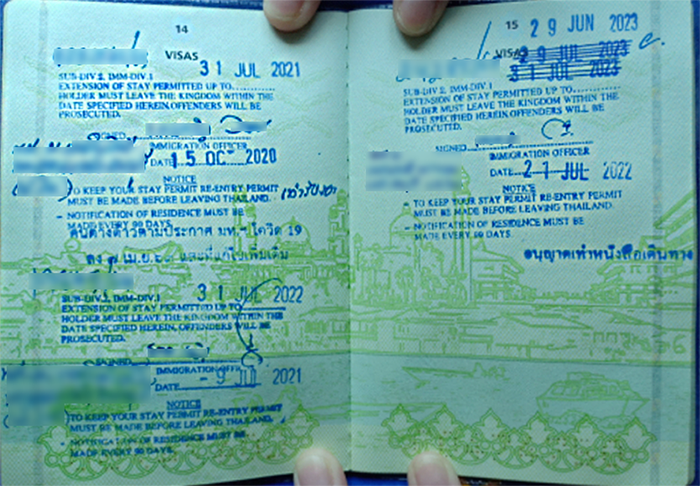 14
VISAS
31 JUL 2021
SUB-DIV.2, IMM-DIV.1
EXTENSION OF STAY PERMITTED UP TO
HOLDER MUST LEAVE THE KINGDOM WITHIN THE
DATE SPECIFIED HEREIN.OFFENDERS WILL BE
PROSECUTED.
SIGNED
IMMIGRATION OFFICER
DATE 15 OCT 2020
NOTICE
- TO KEEP YOUR STAY PERMIT RE-ENTRY PERMIT
MUST BE MADE BEFORE LEAVING THAILAND.
- NOTIFICATION OF RESIDENCE MUST BE
MADE EVERY 90 DAYS.
คนต่างด้าวตามประกาศ มท.ฯ โควิด 19
ลง ๗ เม.ย.๖๓ และที่แก้ไขเพิ่มเติม
31 JUL 2022
SUB-DIV.2, IMM-DIV.1
EXTENSION OF STAY PERMITTED UP TO
HOLDER MUST LEAVE THE KINGDOM WITHIN THE
DATE SPECIFIED HEREIN.OFFENDERS WILL BE
PROSECUTED.
SIGNED
IMMIGRATION OFFICER
DATE - 9 JUL 2021
NOTICE
- TO KEEP YOUR STAY PERMIT RE-ENTRY PERMIT
MUST BE MADE BEFORE LEAVING THAILAND.
- NOTIFICATION OF RESIDENCE MUST BE
MADE EVERY 90 DAYS.
15
29 JUN 2023
VISAS
29 JUL 2023
31 JUL 2023
SUB-DIV.2, IMM-DIV.1
EXTENSION OF STAY PERMITTED UP TO
HOLDER MUST LEAVE THE KINGDOM WITHIN THE
DATE SPECIFIED HEREIN.OFFENDERS WILL BE
PROSECUTED.
SIGNED
IMMIGRATION OFFICER
DATE 21 JUL 2022
NOTICE
- TO KEEP YOUR STAY PERMIT RE-ENTRY PERMIT
MUST BE MADE BEFORE LEAVING THAILAND.
- NOTIFICATION OF RESIDENCE MUST BE
MADE EVERY 90 DAYS.
อนุญาตเท่าหนังสือเดินทาง